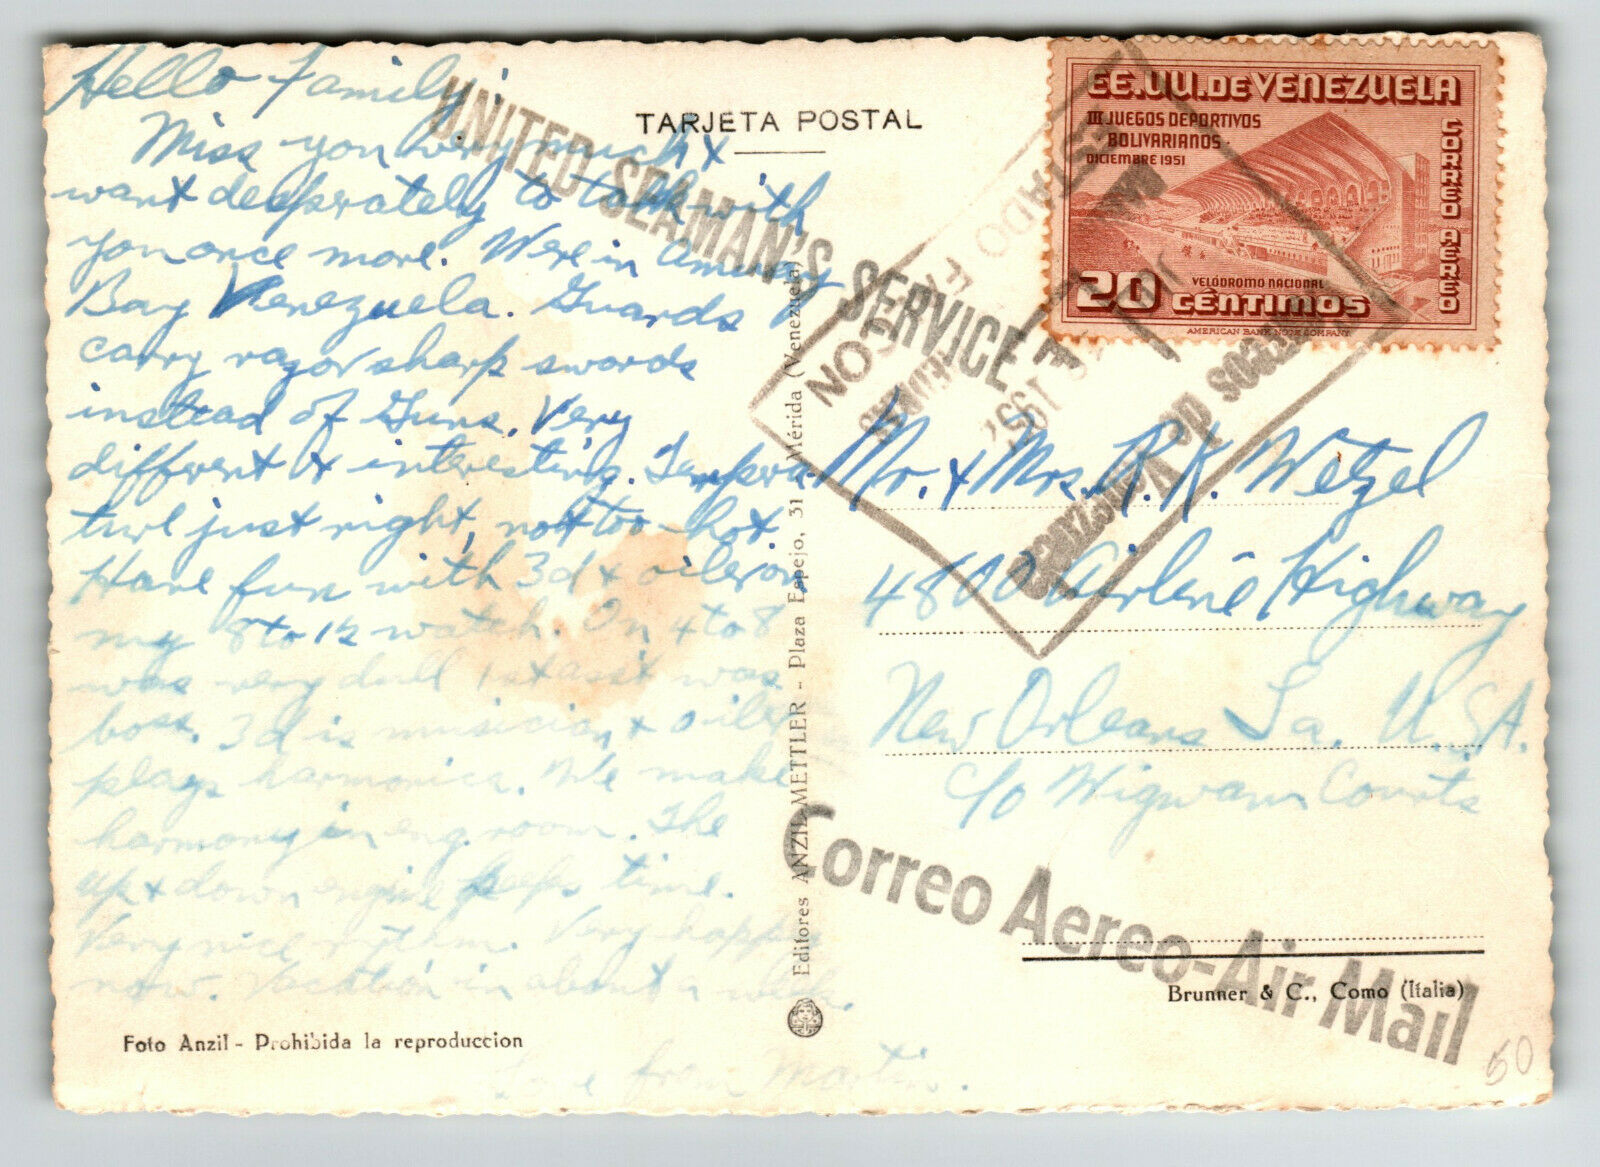 Hello Family,
Miss you very much &
want deesprately to talk with
you once more. We're in Amuay
Bay Venezuela. Guards
carry razor sharp swords
instead of Guns. Very
different & interesting. Tempera-
ture just right, not too hot.
Have fun with 3d & oiler on
my 8 to 12 watch. On 4 to 8
was very dull 1st asst was
boss. 3d is musician & oiler
plays harmonica. We make
harmony in eng. room. The
up & down engine keeps time.
Very nice rythm. Very happy
now. Vacation in about a week.
Love from Martin.
Foto Anzil - Prohibida la reproduccion
UNITED SEAMAN'S SERVICE
TARJETA POSTAL
Editores ANZIL-METTLER - Plaza Espejo, 31 - Mérida (Venezuela)
EE.UU. DE VENEZUELA
III JUEGOS DEPORTIVOS
BOLIVARIANOS
DICIEMBRE 1951
CORREO AEREO
VELÓDROMO NACIONAL
20 CÉNTIMOS
AMERICAN BANK NOTE COMPANY
CORREOS de VENEZUELA
1952
Mr. & Mrs. R. K. Wetzel
4800 Airline Highway
New Orleans La. U.S.A.
c/o Wigwam Courts
Correo Aereo-Air Mail
Brunner & C., Como (Italia)
50